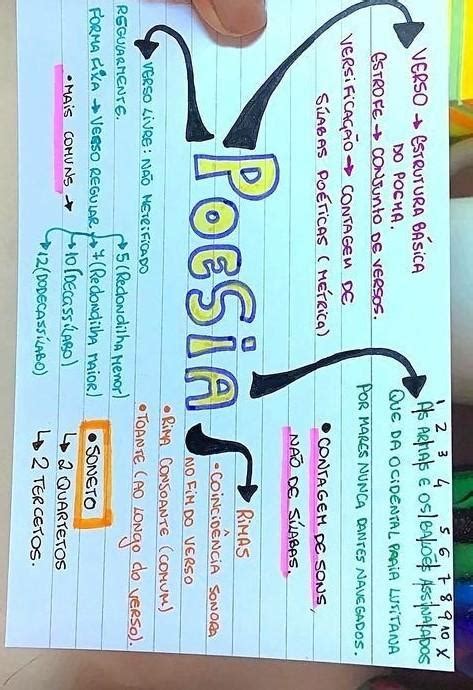 POESIA
VERSO → ESTRUTURA BÁSICA
DO POEMA.
ESTROFE → CONJUNTO DE VERSOS.
VERSIFICAÇÃO → CONTAGEM DE
SÍLABAS POÉTICAS (MÉTRICA)
1 2 3 4 5 6 7 8 9 10 X
AS ARMAS E OS BARÕES ASSINALADOS
QUE DA OCIDENTAL PRAIA LUSITANA
POR MARES NUNCA DANTES NAVEGADOS.
• CONTAGEM DE SONS,
NÃO DE SÍLABAS
VERSO LIVRE: NÃO METRIFICADO
REGULARMENTE.
FORMA FIXA → VERSO REGULAR
• MAIS COMUNS →
5 (Redondilha menor)
7 (Redondilha maior)
10 (DECASSÍLABO)
12 (DODECASSÍLABO)
RIMAS
• COINCIDÊNCIA SONORA
NO FIM DO VERSO
• RIMA CONSOANTE (COMUM)
• TOANTE (AO LONGO DO VERSO).
• SONETO
↳ 2 QUARTETOS
↳ 2 TERCETOS.